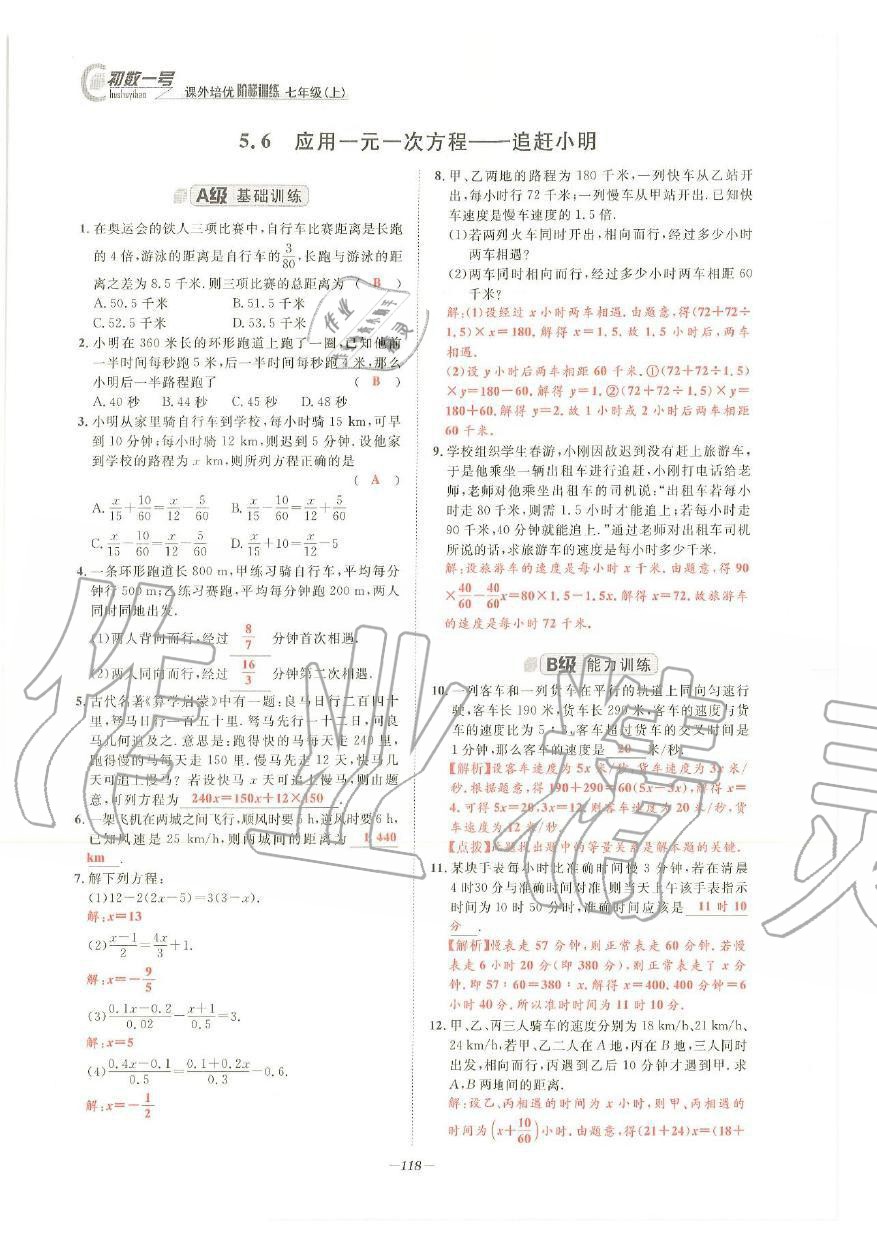 初数一号
chushuyihao
课外培优 阶梯训练 七年级(上)
5.6 应用一元一次方程——追赶小明
A级 基础训练
1. 在奥运会的铁人三项比赛中,自行车比赛距离是长跑
的4倍,游泳的距离是自行车的3/80,长跑与游泳的距
离之差为8.5千米.则三项比赛的总距离为 ( B )
A. 50.5千米 B. 51.5千米
C. 52.5千米 D. 53.5千米
2. 小明在360米长的环形跑道上跑了一圈,已知他前
一半时间每秒跑5米,后一半时间每秒跑4米,那么
小明后一半路程跑了 ( B )
A. 40秒 B. 44秒 C. 45秒 D. 48秒
3. 小明从家里骑自行车到学校,每小时骑15 km,可早
到10分钟;每小时骑12 km,则迟到5分钟.设他家
到学校的路程为x km,则所列方程正确的是
( A )
A. x/15+10/60=x/12-5/60 B. x/15-10/60=x/12+5/60
C. x/15-10/60=x/12-5/60 D. x/15+10=x/12-5
4. 一条环形跑道长800 m,甲练习骑自行车,平均每分
钟行500 m;乙练习赛跑,平均每分钟跑200 m,两人
同时同地出发.
(1)两人背向而行,经过 8/7 分钟首次相遇.
(2)两人同向而行,经过 16/3 分钟第二次相遇.
5. 古代名著《算学启蒙》中有一题:良马日行二百四十
里,驽马日行一百五十里.驽马先行一十二日,问良
马几何追及之.意思是:跑得快的马每天走240里,
跑得慢的马每天走150里.慢马先走12天,快马几
天可追上慢马?若设快马x天可追上慢马,则由题
意,可列方程为 240x=150x+12×150 .
6. 一架飞机在两城之间飞行,顺风时要5 h,逆风时要6 h,
已知风速是25 km/h,则两城间的距离为 1 440
km .
7. 解下列方程:
(1)12-2(2x-5)=3(3-x).
解:x=13
(2)x-1/2=4x/3+1.
解:x=-9/5
(3)0.1x-0.2/0.02-x+1/0.5=3.
解:x=5
(4)0.4x-0.1/0.5=0.1+0.2x/0.3-0.6.
解:x=-1/2
8. 甲、乙两地的路程为180千米,一列快车从乙站开
出,每小时行72千米;一列慢车从甲站开出.已知快
车速度是慢车速度的1.5倍.
(1)若两列火车同时开出,相向而行,经过多少小时
两车相遇?
(2)两车同时相向而行,经过多少小时两车相距60
千米?
解:(1)设经过x小时两车相遇.由题意,得(72+72÷
1.5)×x=180.解得x=1.5.故1.5小时后,两车
相遇.
(2)设y小时后两车相距60千米.①(72+72÷1.5)
×y=180-60.解得y=1.②(72+72÷1.5)×y=
180+60.解得y=2.故1小时或2小时后两车相距
60千米.
9. 学校组织学生春游,小刚因故迟到没有赶上旅游车,
于是他乘坐一辆出租车进行追赶,小刚打电话给老
师,老师对他乘坐出租车的司机说:“出租车若每小
时走80千米,则需1.5小时才能追上;若每小时走
90千米,40分钟就能追上.”通过老师对出租车司机
所说的话,求旅游车的速度是每小时多少千米.
解:设旅游车的速度是每小时x千米.由题意,得90
×40/60-40/60x=80×1.5-1.5x.解得x=72.故旅游车
的速度是每小时72千米.
B级 能力训练
10. 一列客车和一列货车在平行的轨道上同向匀速行
驶,客车长190米,货车长290米,客车的速度与货
车的速度比为5∶3,客车超过货车的交叉时间是
1分钟,那么客车的速度是 20 米/秒.
【解析】设客车速度为5x米/秒,货车速度为3x米/
秒.根据题意,得190+290=60(5x-3x),解得x=
4.可得5x=20,3x=12.则客车速度为20米/秒,
货车速度为12米/秒.
【点拨】应题找出题中的等量关系是解本题的关键.
11. 某块手表每小时比准确时间慢3分钟,若在清晨
4时30分与准确时间对准,则当天上午该手表指示
时间为10时50分时,准确时间应该是 11时10
分 .
【解析】慢表走57分钟,则正常表走60分钟.若慢
表走6小时20分(即380分),则正常表走x分
钟.即57∶60=380∶x.解得x=400.400分钟=6
小时40分.所以准时时间为11时10分.
12. 甲、乙、丙三人骑车的速度分别为18 km/h,21 km/h,
24 km/h,若甲、乙二人在A地,丙在B地,三人同时
出发,相向而行,丙遇到乙后10分钟才能遇到甲.求
A,B两地间的距离.
解:设乙、丙相遇的时间为x小时,则甲、丙相遇的
时间为(x+10/60)小时.由题意,得(21+24)x=(18+
—118—
作业精灵